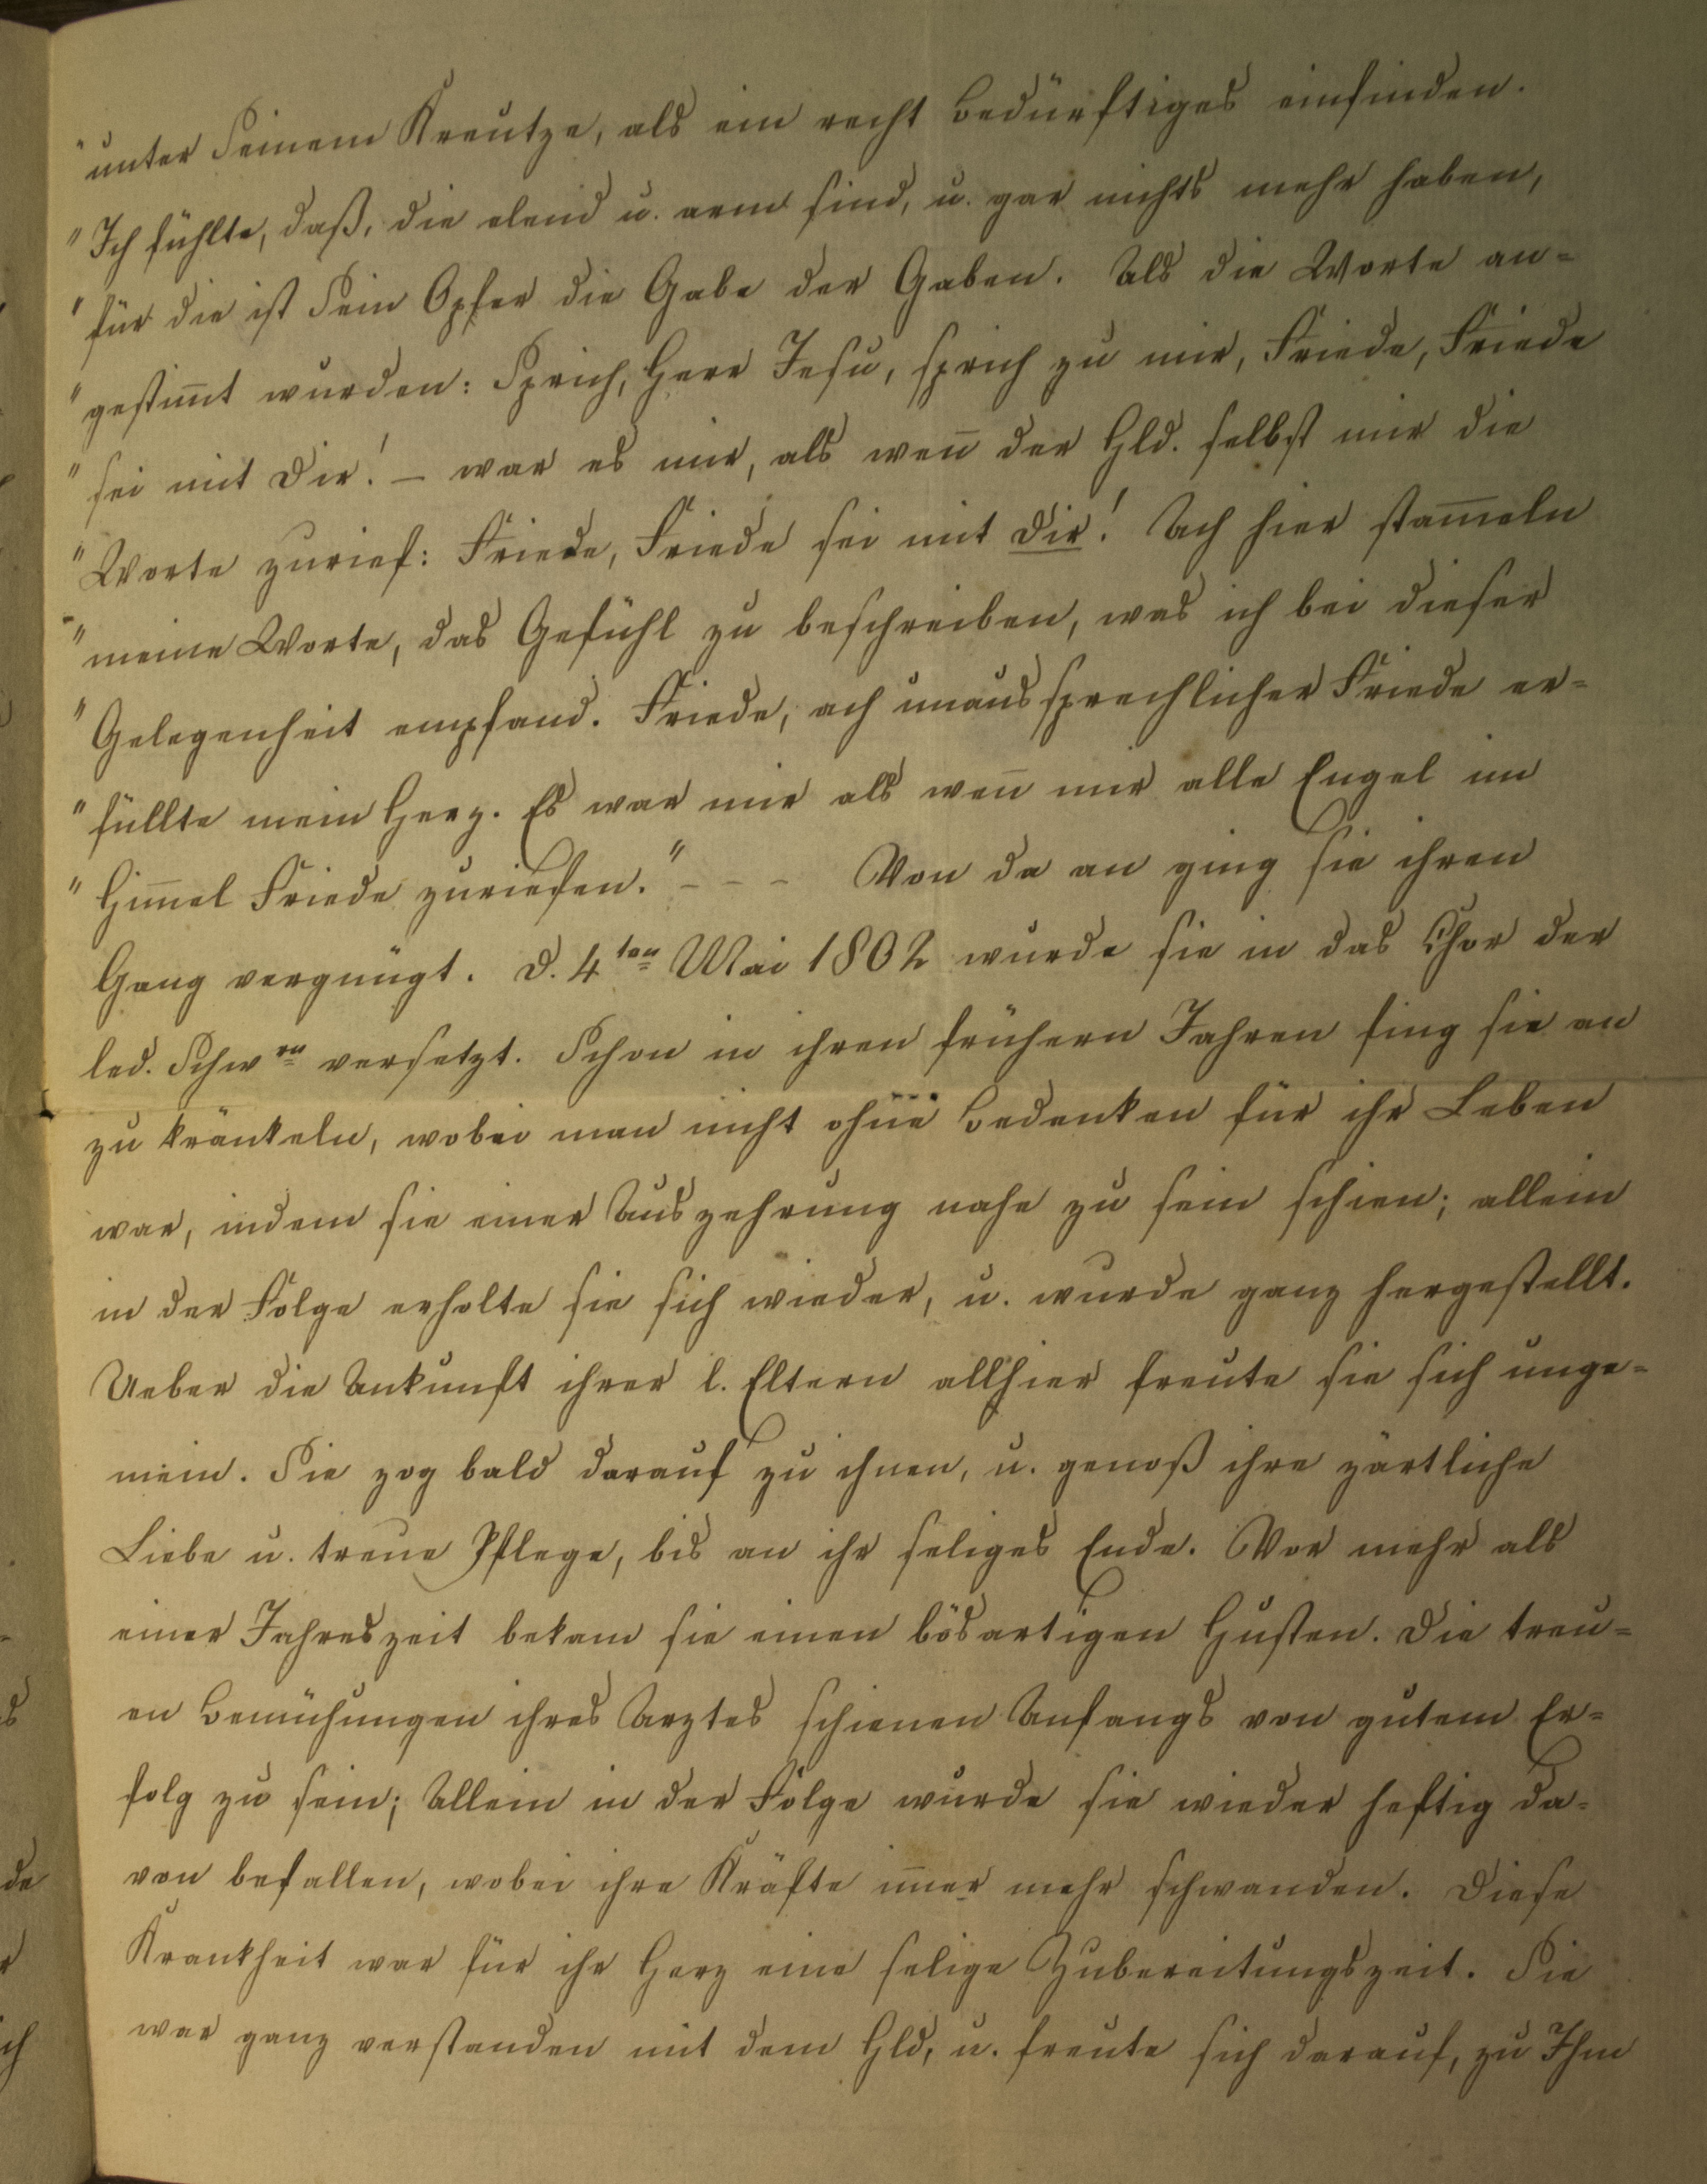 "unter Seinem Kreutze, als ein recht Bedürftiges einfinden.
"Ich fühlte, daß, die elend u. arm sind, u. gar nichts mehr haben,
"für die ist Sein Opfer die Gabe der Gaben. Als die Worte an=
"gestim̄t wurden: Sprich, Herr Jesu, sprich zu mir, Friede, Friede
"sei mit Dir! – war es mir, als wen̄ der Hld. selbst mir die
"Worte zurief: Friede, Friede sei mit Dir! Ach hier stam̄eln
"meine Worte, das Gefühl zu beschreiben, was ich bei dieser
"Gelegenheit empfand. Friede, ach unaussprechlicher Friede er=
"füllte mein Herz. Es war mir als wen̄ mir alle Engel im
"Him̄el Friede zuriefen." – – – Von da an ging sie ihren
Gang vergnügt. D. 4ten Mai 1802 wurde sie in das Chor der
led. Schwrn versetzt. Schon in ihren frühern Jahren fing sie an
zu kränkeln, wobei man nicht ohne Bedenken für ihr Leben
war, indem sie einer Auszehrung nahe zu sein schien; allein
in der Folge erholte sie sich wieder, u. wurde ganz hergestellt.
Ueber die Ankunft ihrer l. Eltern allhier freute sie sich unge=
mein. Sie zog bald darauf zu ihnen, u. genoß ihre zärtliche
Liebe u. treue Pflege, bis an ihr seliges Ende. Vor mehr als
einer Jahreszeit bekam sie einen bösartigen Husten. Die treu=
en Bemühungen ihres Arztes schienen Anfangs von gutem Er=
folg zu sein; Allein in der Folge wurde sie wieder heftig da=
von befallen, wobei ihre Kräfte im̄er mehr schwanden. Diese
Krankheit war für ihr Herz eine selige Zubereitungszeit. Sie
war ganz verstanden mit dem Hld, u. freute sich darauf, zu Ihm